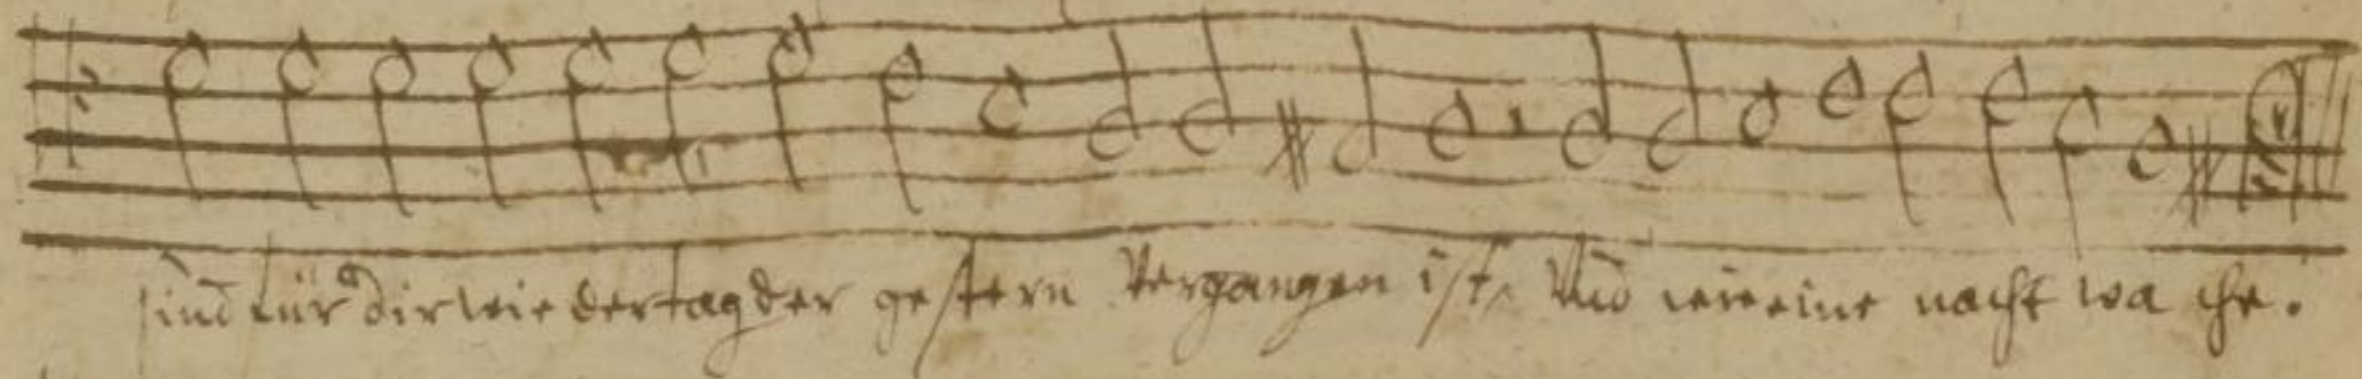 sind für dir wie der tag der gestern Vergangen ist, Und wie eine nacht wa che.